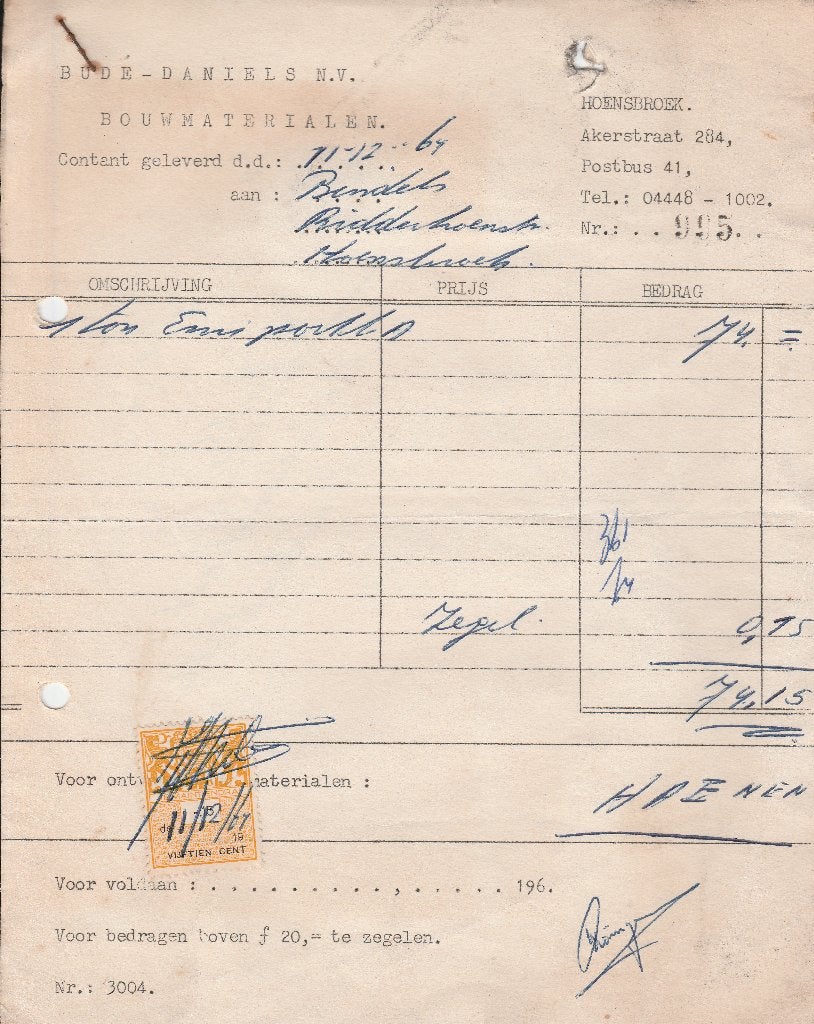 BUDÉ-DANIELS N.V.
BOUWMATERIALEN.
HOENSBROEK.
Akerstraat 284,
Postbus 41,
Tel.: 04448 - 1002.
Nr.: . . 995. .
Contant geleverd d.d.: 11-12-64
aan : Bendels
Ridderhoenstr.
Hoensbroek.
OMSCHRIJVING PRIJS BEDRAG
1 ton 74,=
Zegel. 0,15
74,15
Voor materialen :
HAENEN
11/12/64
19
VIJFTIEN CENT
Voor voldaan : . . . . . . . . . . , . . . . . 196.
Voor bedragen boven ƒ 20,= te zegelen.
Nr.: 3004.